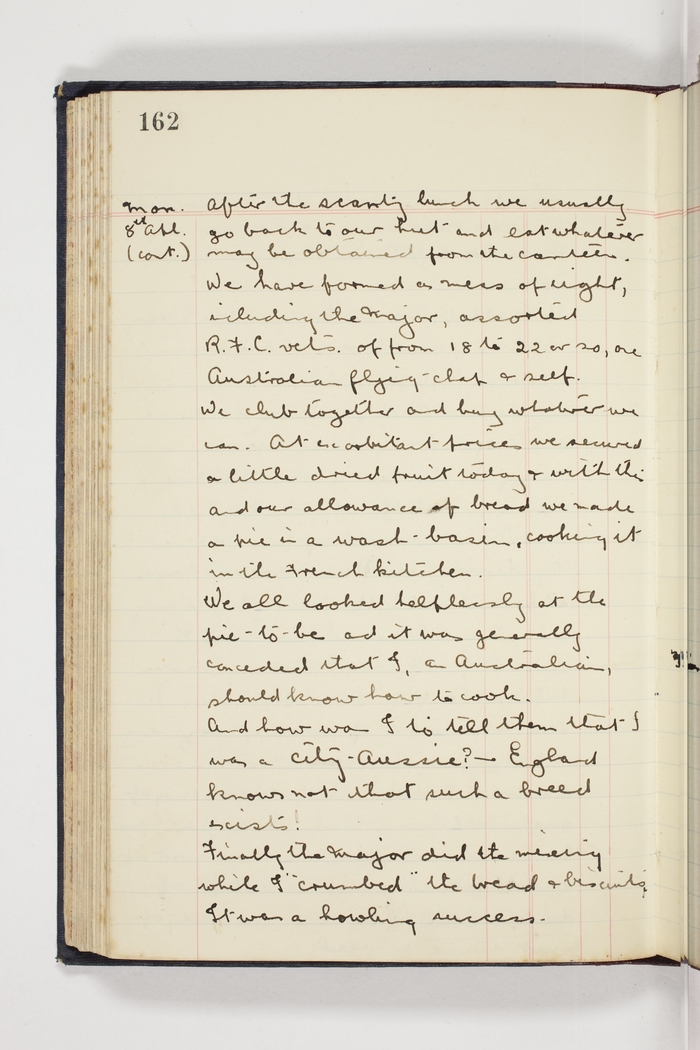 162
Mon. After the scanty lunch we usually
8th Apl. go back to our hut and eat whatever
(cont.) may be obtained from the canteen.
We have formed a mess of eight,
icluding the Major, assorted
R.F.C. vets. of from 18 to 22 or so, one
Australian flying-chap & self.
We club together and buy whatever we
can. At exorbitant prices we secured
a little dried fruit today & with this
and our allowance of bread we made
a pie in a wash-basin, cooking it
in the French kitchen.
We all looked helplessly at the
pie-to-be and it was generally
conceded that I, an Australian,
should know how to cook.
And how was I to tell them that I
was a city-Aussie? — England
knows not that such a breed
exists!
Finally the Major did the mixing
while I "crumbed" the bread & biscuits.
It was a howling success.